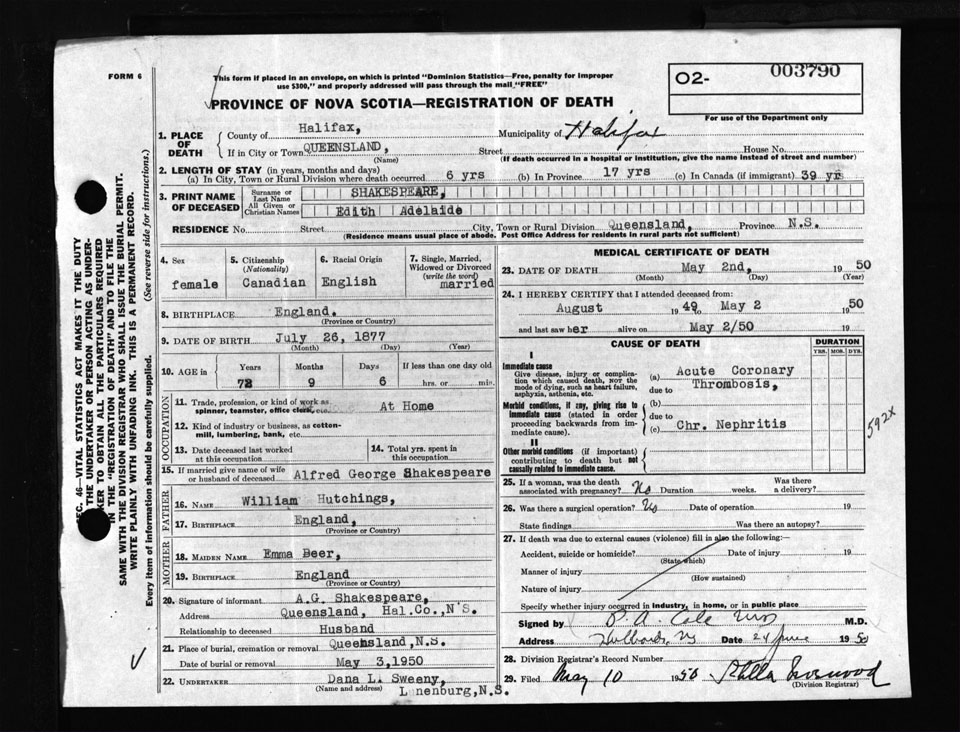 FORM 6
This form if placed in an envelope, on which is printed "Dominion Statistics—Free, penalty for improper
use $300," and properly addressed will pass through the mail "FREE"
PROVINCE OF NOVA SCOTIA—REGISTRATION OF DEATH
O2- 003790
For use of the Department only
1. PLACE OF DEATH
County of Halifax, Municipality of Halifax
If in City or Town QUEENSLAND, Street House No.
(Name) (If death occurred in a hospital or institution, give the name instead of street and number)
2. LENGTH OF STAY (in years, months and days)
(a) In City, Town or Rural Division where death occurred 6 yrs (b) In Province 17 yrs (c) In Canada (if immigrant) 39 yr
3. PRINT NAME OF DECEASED
Surname or Last Name SHAKESPEARE,
All Given or Christian Names Edith Adelaide
RESIDENCE No. Street City, Town or Rural Division Queensland, Province N.S.
(Residence means usual place of abode. Post Office Address for residents in rural parts not sufficient)
4. Sex female
5. Citizenship (Nationality) Canadian
6. Racial Origin English
7. Single, Married, Widowed or Divorced (write the word) married
8. BIRTHPLACE England.
(Province or Country)
9. DATE OF BIRTH July 26, 1877
(Month) (Day) (Year)
10. AGE Years Months Days If less than one day old
72 9 6 hrs. or min.
OCCUPATION
11. Trade, profession or kind of work as
spinner, teamster, office clerk, etc. At Home
12. Kind of industry or business, as cotton-
mill, lumbering, bank, etc.
13. Date deceased last worked
at this occupation
14. Total yrs. spent in
this occupation
15. If married give name of wife
or husband of deceased Alfred George Shakespeare
FATHER
16. NAME William Hutchings,
17. BIRTHPLACE England,
(Province or Country)
MOTHER
18. MAIDEN NAME Emma Beer,
19. BIRTHPLACE England
(Province or Country)
20. Signature of informant A.G. Shakespeare,
Address Queensland, Hal.Co.,N'S.
Relationship to deceased Husband
21. Place of burial, cremation or removal Queensland,N.S.
Date of burial or removal May 3,1950
22. UNDERTAKER Dana L. Sweeny,
(Name and address) Lunenburg,N.S.
MEDICAL CERTIFICATE OF DEATH
23. DATE OF DEATH May 2nd, 1950
(Month) (Day) (Year)
24. I HEREBY CERTIFY that I attended deceased from:
August 1949 to May 2 1950
and last saw her alive on May 2/50 19
CAUSE OF DEATH DURATION
YRS. MOS. DYS.
I
Immediate cause
Give disease, injury or complica-
tion which caused death, NOT the
mode of dying, such as heart failure,
asphyxia, asthenia, etc.
(a) Acute Coronary
Thrombosis,
due to
Morbid conditions, if any, giving rise to
immediate cause (stated in order
proceeding backwards from im-
mediate cause).
(b)
due to
(c) Chr. Nephritis
592X
II
Other morbid conditions (if important)
contributing to death but not
causally related to immediate cause.
25. If a woman, was the death
associated with pregnancy? No Duration weeks. Was there
a delivery?
26. Was there a surgical operation? No Date of operation 19
State findings Was there an autopsy?
27. If death was due to external causes (violence) fill in also the following:—
Accident, suicide or homicide? Date of injury 19
(State which)
Manner of injury
(How sustained)
Nature of injury
Specify whether injury occurred in industry, in home, or in public place
Signed by P. A. Cole M.D.
Address Hubbards, NS Date 24 June 1950
28. Division Registrar's Record Number
29. Filed May 10 1950 Stella
(Division Registrar)
SEC. 46—VITAL STATISTICS ACT MAKES IT THE DUTY
OF THE UNDERTAKER OR PERSON ACTING AS UNDER-
TAKER TO OBTAIN ALL THE PARTICULARS REQUIRED
IN THE "REGISTRATION OF DEATH" AND TO FILE THE
SAME WITH THE DIVISION REGISTRAR WHO SHALL ISSUE THE BURIAL PERMIT.
WRITE PLAINLY WITH UNFADING INK. THIS IS A PERMANENT RECORD.
Every item of information should be carefully supplied. (See reverse side for instructions.)